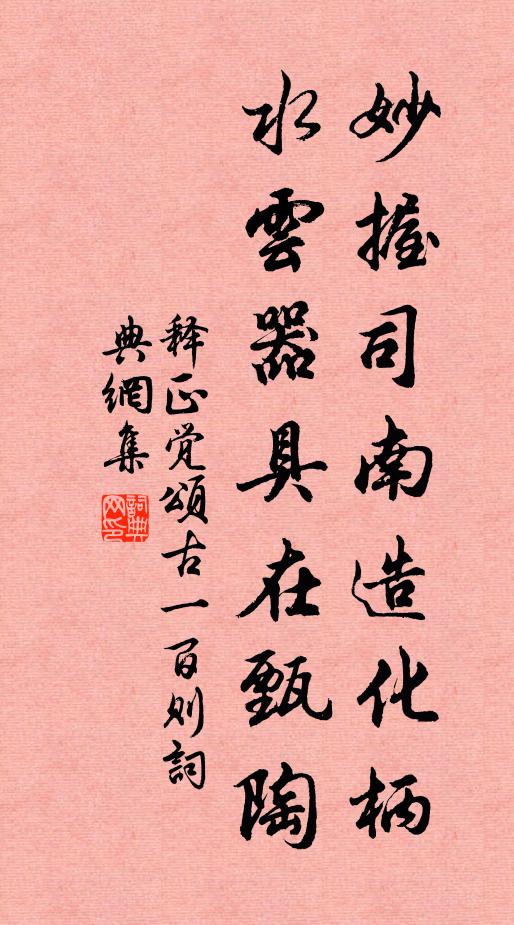 妙握司南造化柄
水雲器具在甄陶
释正觉頌古一百则詞
典網集
詞典网印